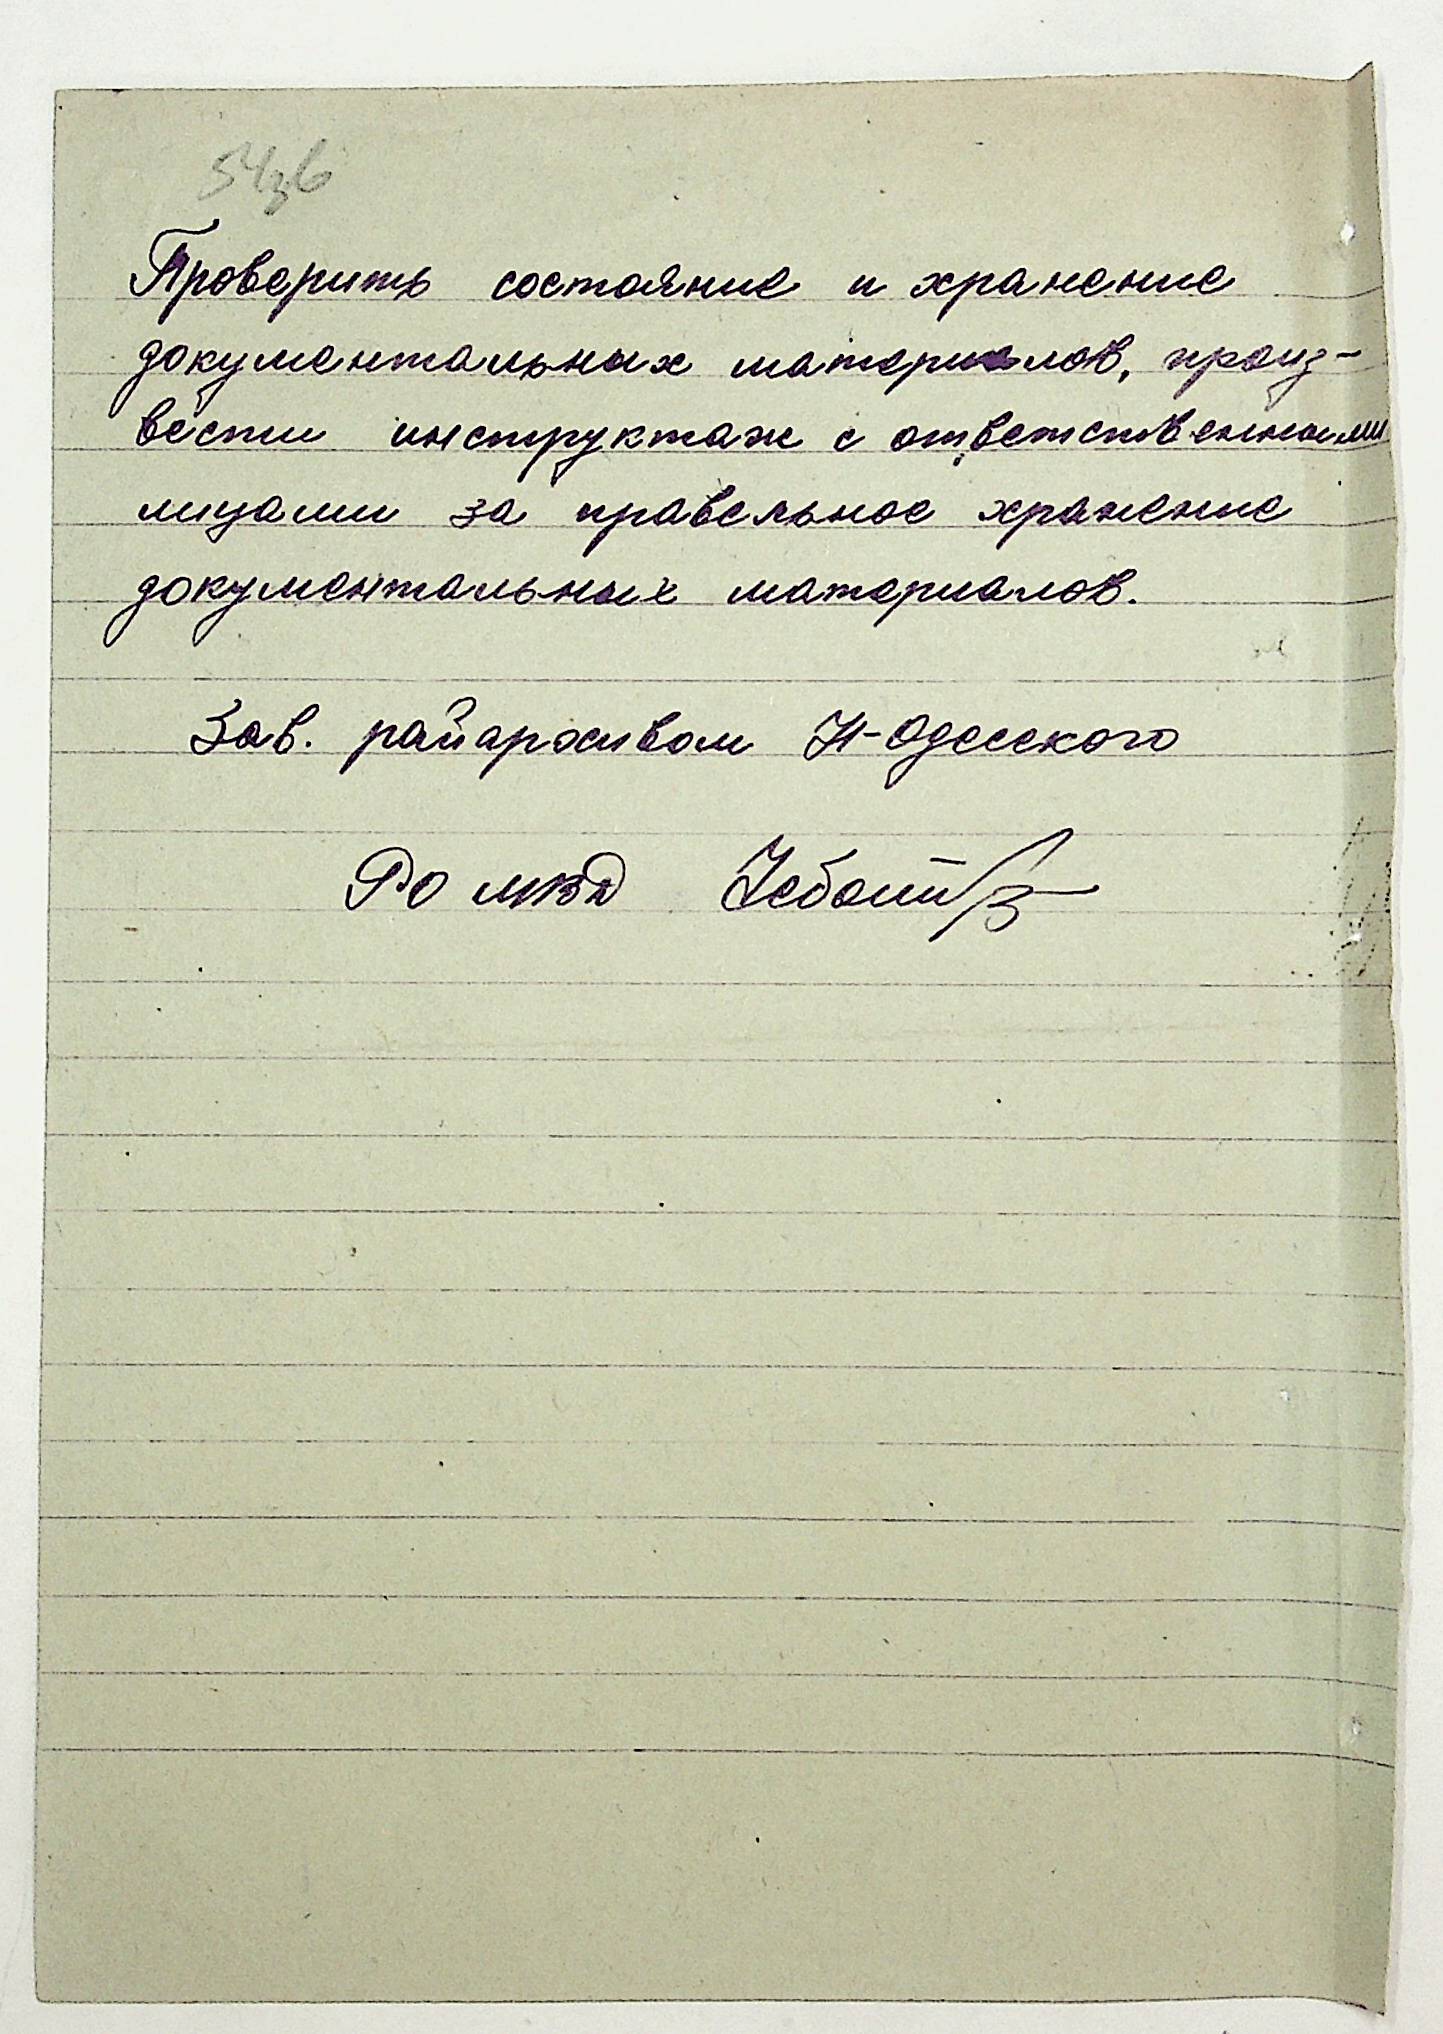 54зв
Проверить состояние и хранение
документальных материалов, произ-
вести инструктаж с ответственными
лицами за правельное хранение
документальных материалов.
Зав. райархивом Н-Одесского
РО МВД